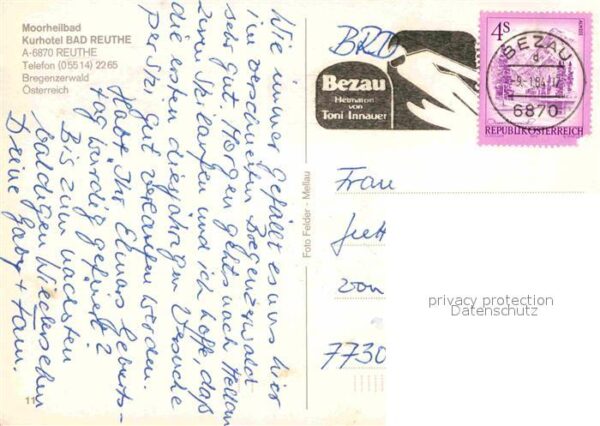 Moorheilbad
Kurhotel BAD REUTHE
A-6870 REUTHE
Telefon (05514) 2265
Bregenzerwald
Österreich
Wie immer gefällt es uns hier
im verschneiten Bregenzerwald
sehr gut. Morgen gehts nach Mellau
zum Ski laufen und ich hoffe, daß
die ersten diesjährigen Versuche
per Ski gut verlaufen werden.
Habt Ihr Elmars Geburts-
tag würdig gefeiert?
Bis zum nächsten
baldigen Wiedersehen
Deine Gaby + Fam.
11
Foto Felder - Mellau
BRD
Bezau
Heimatort
von
Toni Innauer
4S
BEZAU
6870
REPUBLIK ÖSTERREICH
Frau
von
7730
privacy protection
Datenschutz